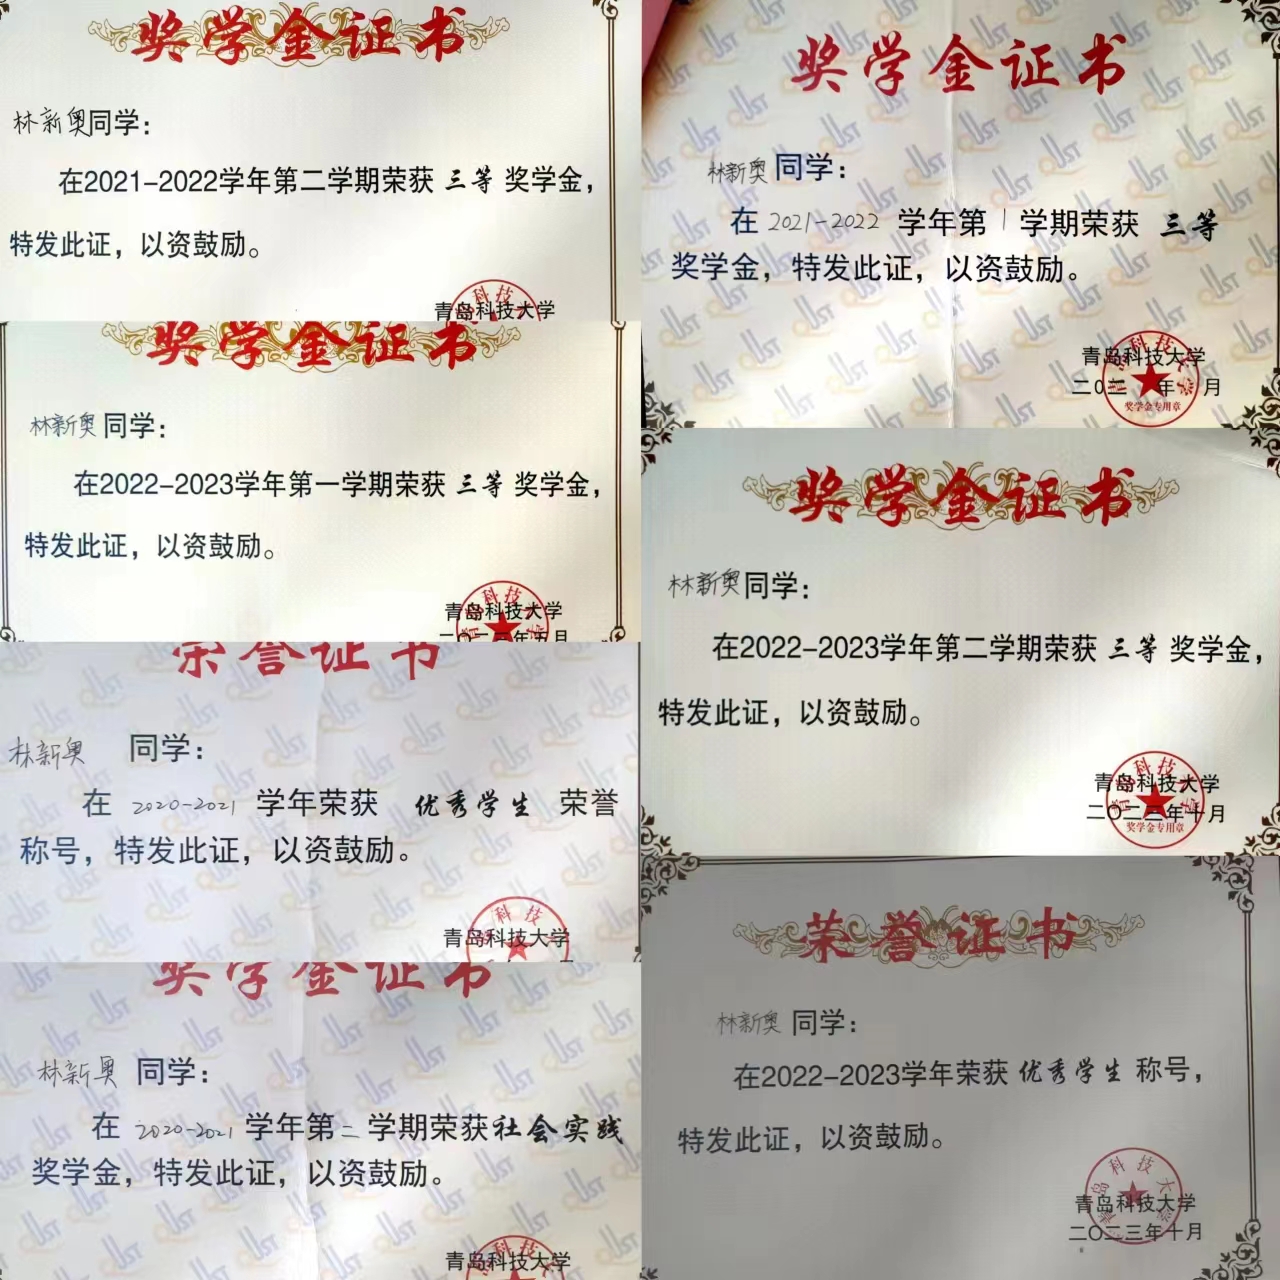 奖学金证书
林新奥同学：
在2021-2022学年第二学期荣获 三等 奖学金，
特发此证，以资鼓励。
青岛科技大学
奖学金证书
林新奥同学：
在2022-2023学年第一学期荣获 三等 奖学金，
特发此证，以资鼓励。
青岛科技大学
二〇二三年五月
荣誉证书
林新奥 同学：
在 2020-2021 学年荣获 优秀学生 荣誉
称号，特发此证，以资鼓励。
青岛科技大学
奖学金证书
林新奥 同学：
在 2020-2021 学年第二学期荣获社会实践
奖学金，特发此证，以资鼓励。
青岛科技大学
奖学金证书
林新奥 同学：
在 2021-2022 学年第 1 学期荣获 三等
奖学金，特发此证，以资鼓励。
青岛科技大学
二〇二 年 月
奖学金专用章
奖学金证书
林新奥同学：
在2022-2023学年第二学期荣获 三等 奖学金，
特发此证，以资鼓励。
青岛科技大学
二〇二三年十月
奖学金专用章
荣誉证书
林新奥 同学：
在2022-2023学年荣获 优秀学生 称号，
特发此证，以资鼓励。
青岛科技大学
二〇二三年十月